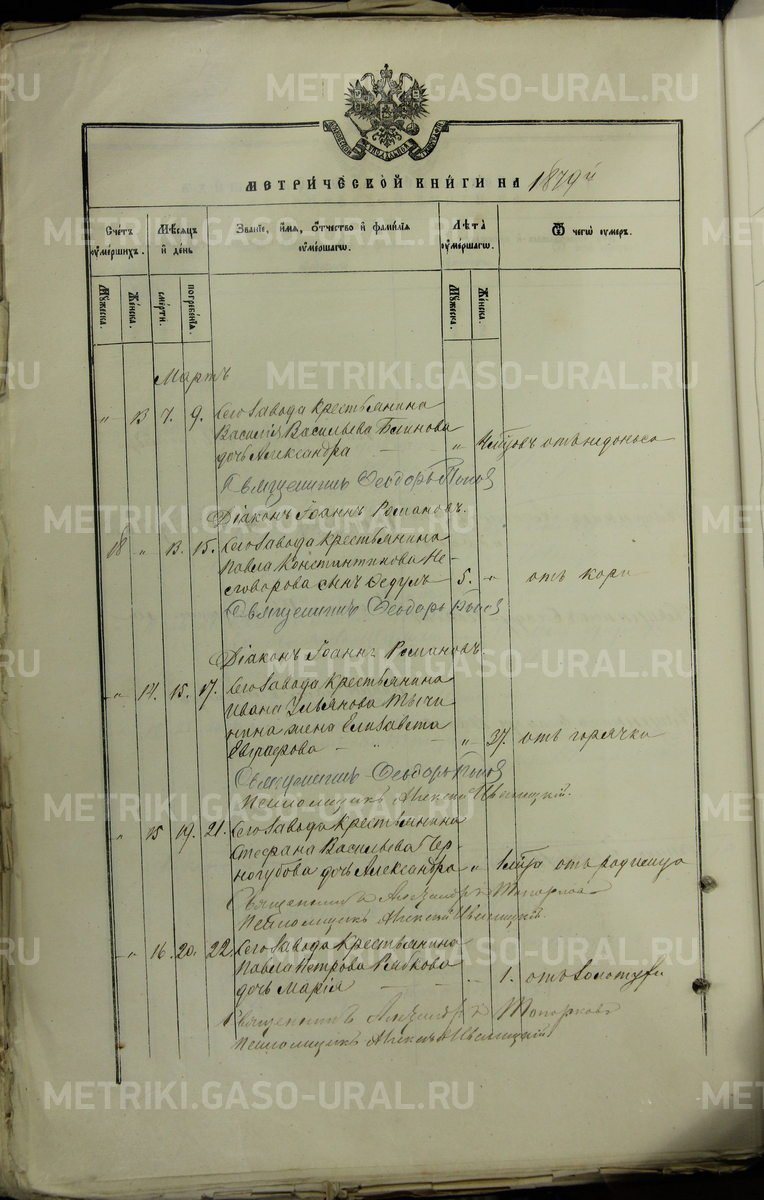 METRIKI.GASO-URAL.RU
МЕТРИ́ЧЕСКОЙ КНИ́ГИ НА 1879й
Сче́тъ оумéршихъ.
Мѣ́сяцъ и҆ де́нь
Зва́нїе, и҆́мѧ, ѻ҆́тчество и҆ фамѝлїѧ оумéршагѡ.
Лѣ́та оумéршагѡ.
Ѿ чегѡ̀ оу́меръ.
Мꙋ́жеска.
Же́нска.
сме́рти.
погребе́нїѧ.
Мꙋ́жеска.
Же́нска.
Мартъ
" 13 7. 9. Сего завода Крестьянина
Василія Васильева Блинова
дочь Александра " 4 отъ недоноса
Священникъ Ѳеодоръ Попов
Діаконъ Іоаннъ Романовъ.
18 " 13. 15. Сего завода Крестьянина
Павла Константинова Не-
говорова сынъ Ѳедулъ 5. " отъ кори
Священникъ Ѳеодоръ Попов
Діаконъ Іоаннъ Романовъ.
" 14. 15. 17. Сего завода Крестьянина
Ивана Ульянова Тычи
нина жена Елисавета
Евграфова " 37. отъ горячки
Священникъ Ѳеодоръ Попов
Псаломщикъ Алексѣй
" 15 19. 21. Сего завода Крестьянина
Стефана Васильева Чер-
ногубова дочь Александра " отъ родимца
Священникъ Александръ Топорковъ
Псаломщикъ Алексѣй
" 16. 20. 22. Сего завода Крестьянина
Павла Петрова Рыбкова
дочь Марія 1. отъ золотухи
Священникъ Александръ Топорковъ
Псаломщикъ Алексѣй